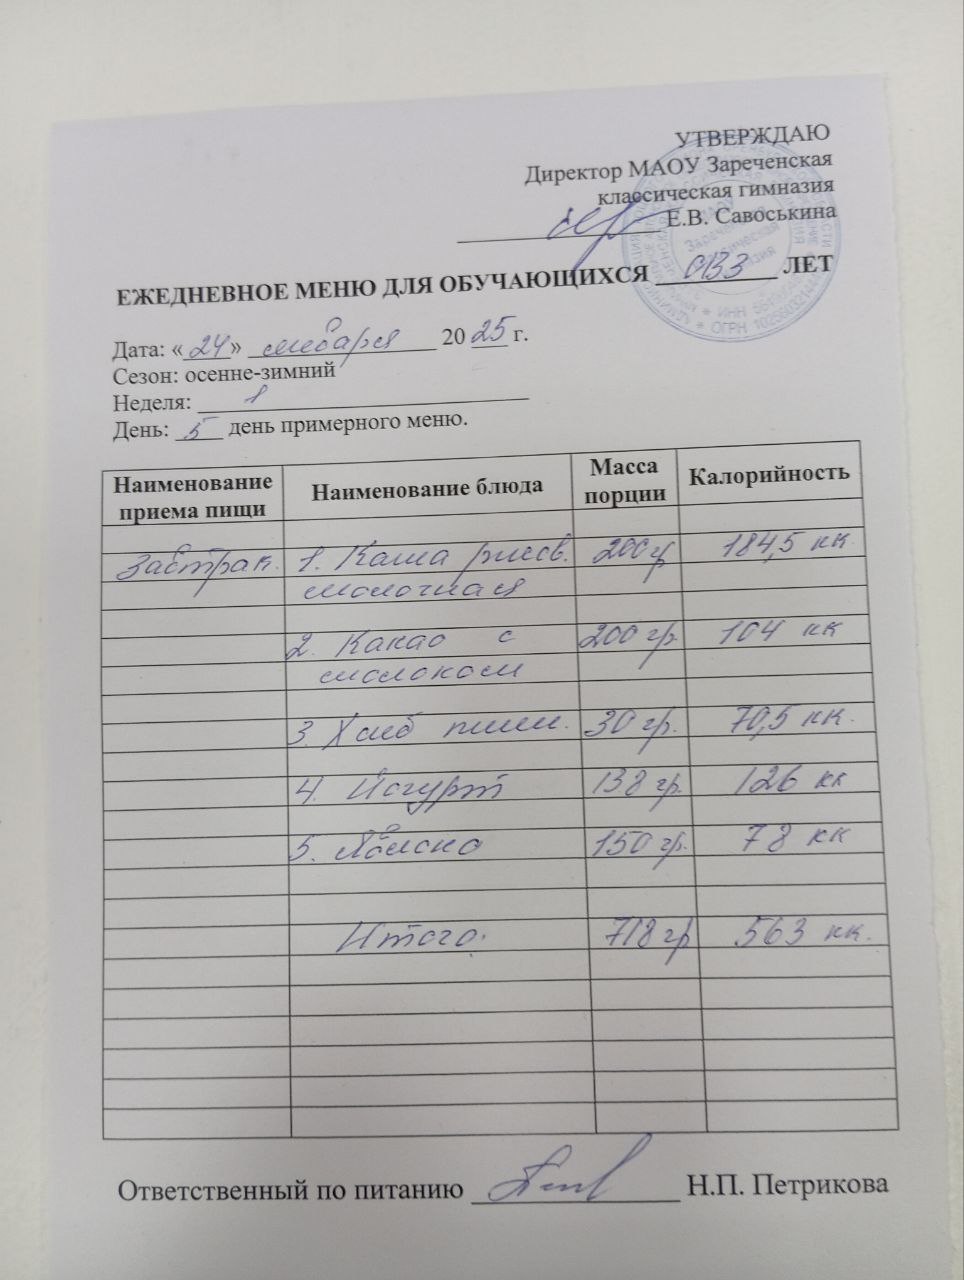 УТВЕРЖДАЮ
Директор МАОУ Зареченская
классическая гимназия
Е.В. Савоськина
ЕЖЕДНЕВНОЕ МЕНЮ ДЛЯ ОБУЧАЮЩИХСЯ ОВЗ ЛЕТ
Дата: «24» января 2025 г.
Сезон: осенне-зимний
Неделя: 1
День: 5 день примерного меню.
Наименование приема пищи Наименование блюда Масса порции Калорийность
Завтрак. 1. Каша рисов. 200 гр 184,5 кк.
молочная
2. Какао с 200 гр. 104 кк
молоком
3. Хлеб пшен. 30 гр. 70,5 кк.
4. Йогурт 138 гр. 126 кк
5. Яблоко 150 гр. 78 кк
Итого: 718 гр 563 кк.
Ответственный по питанию Н.П. Петрикова